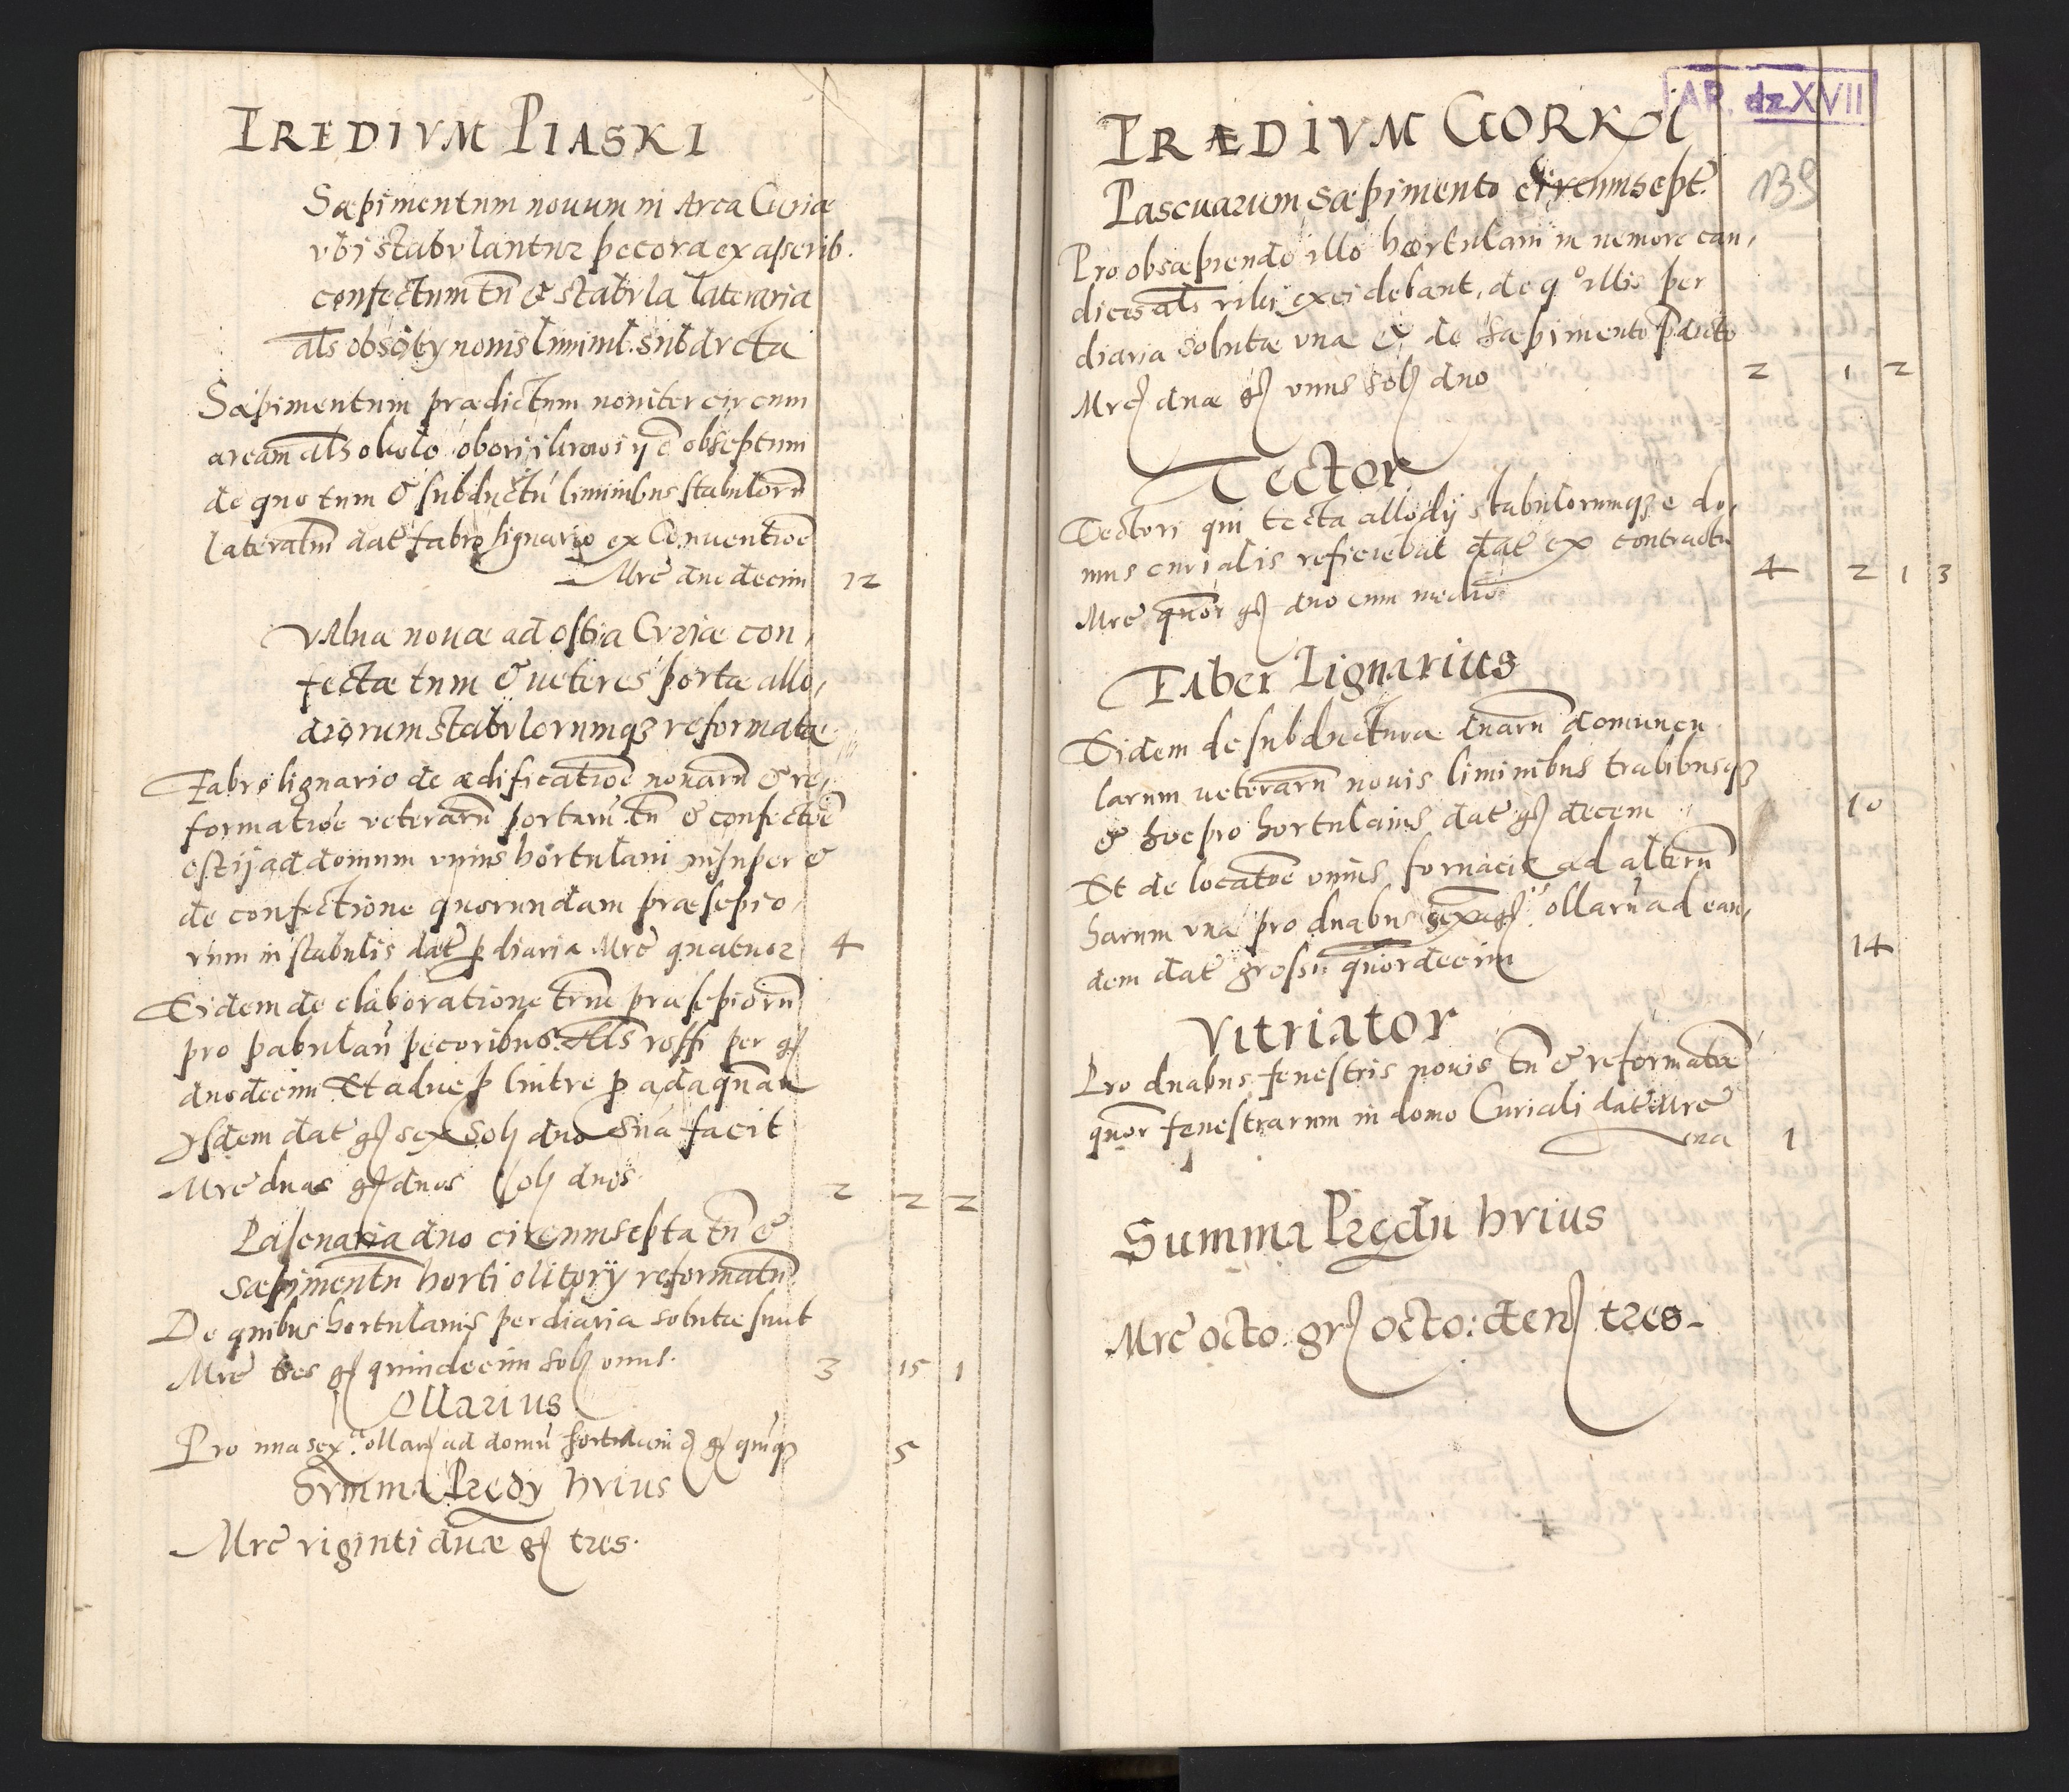 PREDIVM PIASKI
Sæpimentum nouum in Area Curiæ
vbi stabvlantur pecora ex asserib.
confectum tn̄ & stabvla lateraria
als obs limini. subdvcta
Sæpimentum prædictum noniter circum
aream als około obori ē obseptum
de quo tum & subductū liminibus stabulorū
lateraliū dat̄ fabro lignario ex Conuentioē
Mrē duodecim 12
Valuæ nouæ ad ostia Curiæ con,
fectæ tum & ueteres portæ allo,
diorum stabvlorumq3 reformatæ
Fabro lignario de ædificatioē nouarū & re,
formatioē veterarū portarū tn̄ & confectioē
ostij ad domum vnius hortulani insuper &
de confectione quorundam præsepio,
rum in stabulis dat̄ p diaria Mrē quatuor 4
Eidem de elaboratione trium præsepiorū
pro pabulaū pecoribus. Als roffi per gſ
duodecim Et adue p lintre p adaquāū
dat̄ gſ sex Solj duo Sūa facit
Mrē duas gſ duos Solj duos 2 2 2
Pascuaria duo circumsepta tn̄ &
sæpimentū horti olitorij reformatū
De quibus hortulanis per diaria solutæ sunt
Mrē tres gſ quindecim Solj vnus. 3 15 1
Ollarius
Pro una sex.ª ollarſ ad domū hortulani gſ quīq3 5
Svmma Predÿ hvius
Mrē viginti dvæ gſ tres.
AR. dz XVII
PRÆDIVM GORKI
139
Pascuarum sæpimento circumsept.
Pro obsæpiendo illo hortulani in nemore cau,
dices als exci debant, de qº illis per
diaria solutæ vna & de sæpimento pdicto
Mrcſ duæ gſ vnus solj duo 2 1 2
Tector
Tectori qui tecta allodÿ stabulorumq3 e do,
mus curialis reficiebat dat̄ ex contractu
Mrē quor gſ duo cum medio 4 2 1 3
Faber Lignarius
Eidem de subductura duarū domuncu
larum ueterarū nouis liminibus trabibusq3
& hoc pro hortulanis dat̄ gſ decem 10
Et de locatōe vnius fornacis ad alterū
harum vna pro duabus sexagſ ollarū ad ean,
dem dat̄ grossi quordecim 14
Vitriator
Pro duabus fenestris nouis tn̄ & reformatōe
quor fenestrarum in domo Curiali dat̄ Mrē
una 1
Summa Prędii hvius
Mrē octo grſ octo: denſ tres